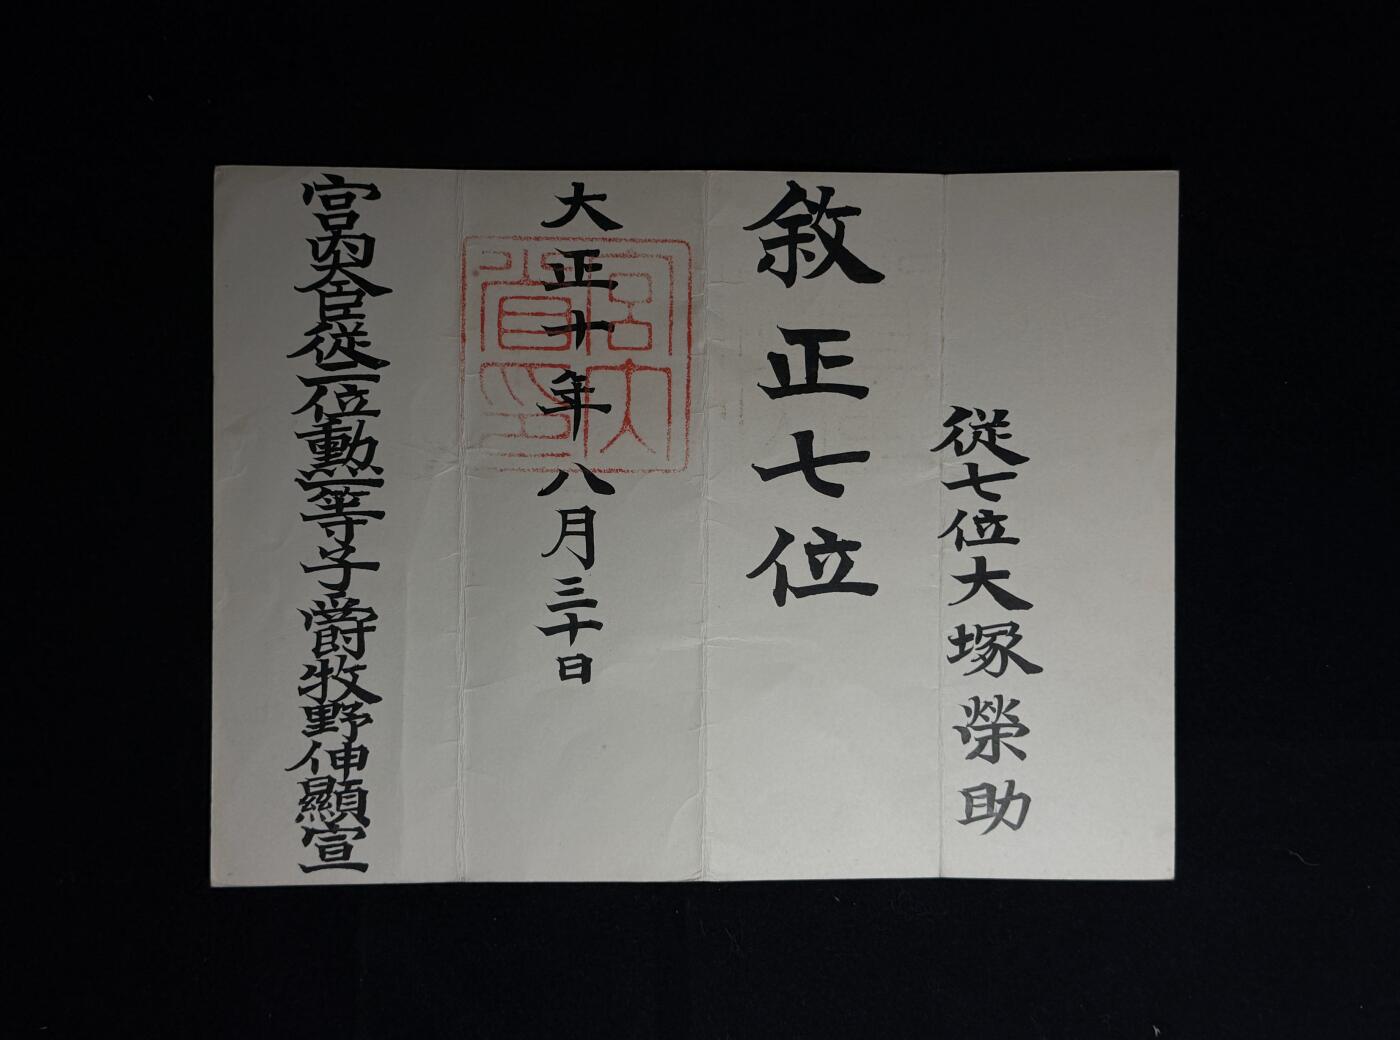 従七位大塚榮助
敘正七位
大正十年八月三十日
宮内大臣従二位勳一等子爵牧野伸顯宣
宮内省印